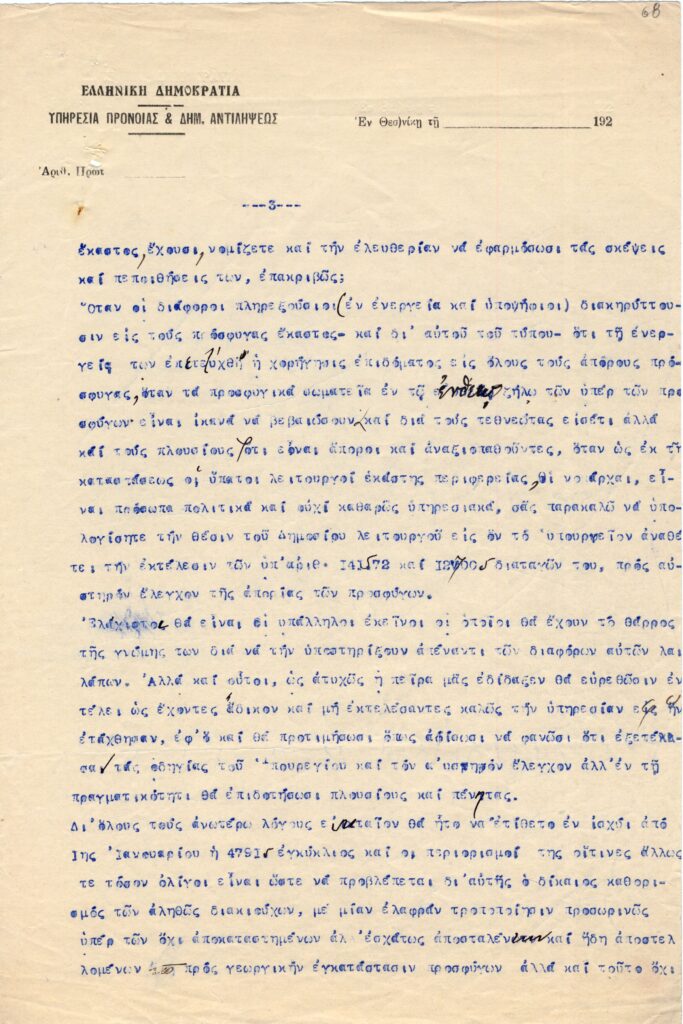 68
ΕΛΛΗΝΙΚΗ ΔΗΜΟΚΡΑΤΙΑ
ΥΠΗΡΕΣΙΑ ΠΡΟΝΟΙΑΣ & ΔΗΜ. ΑΝΤΙΛΗΨΕΩΣ
Ἐν Θεσ)νίκῃ τῇ 192
Ἀριθ. Πρωτ
---3---
ἕκαστος, ἔχουσι, νομίζετε καί τήν ἐλευθερίαν νά ἐφαρμόσωσι τάς σκέψεις
καί πεποιθήσεις των, ἐπακριβῶς;
Ὅταν οἱ διάφοροι πληρεξούσιοι (ἐν ἐνεργεία καί ὑποψήφιοι) διακηρύττου-
σιν εἰς τούς πρόσφυγας ἕκαστος- καί δι' αὐτοῦ τοῦ τύπου- ὅτι τῇ ἐνερ-
γείᾳ των ἐπετεύχθη ἡ χορήγησις ἐπιδόματος εἰς ὅλους τούς ἀπόρους πρό-
σφυγας, ὅταν τά προσφυγικά σωματεῖα ἐν τῷ ζήλω τῶν ὑπέρ τῶν προ
σφύγων εἶναι ἱκανά νά βεβαιώσουν καί διά τούς τεθνεῶτας εἰσέτι ἀλλά
καί τούς πλουσίους ὅτι εἶναι ἄποροι καί ἀναξιοπαθοῦντες, ὅταν ὡς ἐκ τῆ
καταστάσεως οἱ ὕπατοι λειτουργοί ἑκάστης περιφερείας, οἱ νομάρχαι, εἶ-
ναι πρόσωπα πολιτικά καί οὐχί καθαρῶς ὑπηρεσιακά, σᾶς παρακαλῶ νά ὑπο-
λογίσητε τήν θέσιν τοῦ Δημοσίου λειτουργοῦ εἰς ὅν τό Ὑπουργεῖον ἀναθέ
τει τήν ἐκτέλεσιν τῶν ὑπ'ἀριθ. διαταγῶν του, πρός αὐ-
στηρόν ἔλεγχον τῆς ἀπορίας τῶν προσφύγων.
Ἐλάχιστοι θά εἶναι οἱ ὑπάλληλοι ἐκεῖνοι οἱ ὁποῖοι θά ἔχουν τό θάρρος
τῆς γνώμης των διά νά τήν ὑποστηρίξουν ἀπέναντι τῶν διαφόρων αὐτῶν λαι
λάπων. Ἀλλά καί οὗτοι, ὡς ἀτυχῶς ἡ πεῖρα μᾶς ἐδίδαξεν θά εὑρεθῶσιν ἐν
τέλει ὡς ἔχοντες ἄδικον καί μή ἐκτελέσαντες καλῶς τήν ὑπηρεσίαν ἐφ' ἥν
ἐτάχθησαν, ἐφ'ᾧ καί θά προτιμήσωσι ὅπως ἀφίσωσι νά φανῶσι ὅτι ἐξετέλε-
σαν τάς ὁδηγίας τοῦ Ὑπουργείου καί τόν αὐστηρόν ἔλεγχον ἀλλ'ἐν τῇ
πραγματικότητι θά ἐπιδοτήσωσι πλουσίους καί πένητας.
Δι'ὅλους τούς ἀνωτέρω λόγους εὐκταῖον θά ἦτο νά ἐτίθετο ἐν ἰσχύι ἀπό
Iης Ἰανουαρίου ἡ 47915 ἐγκύκλιος καί οἱ περιορισμοί της οἵτινες ἄλλως
τε τόσον ὀλίγοι εἶναι ὥστε νά προβλέπεται δι'αὐτῆς ὁ δίκαιος καθορι-
σμός τῶν ἀληθῶς δικαιούχων, μέ μίαν ἐλαφράν τροποποίησιν προσωρινῶς
ὑπέρ τῶν ὄχι ἀποκαταστημένων ἀλλ'ἐσχάτως ἀποσταλέντων καί ἤδη ἀποστελ
λομένων πρός γεωργικήν ἐγκατάστασιν προσφύγων ἀλλά καί τοῦτο ὄχι